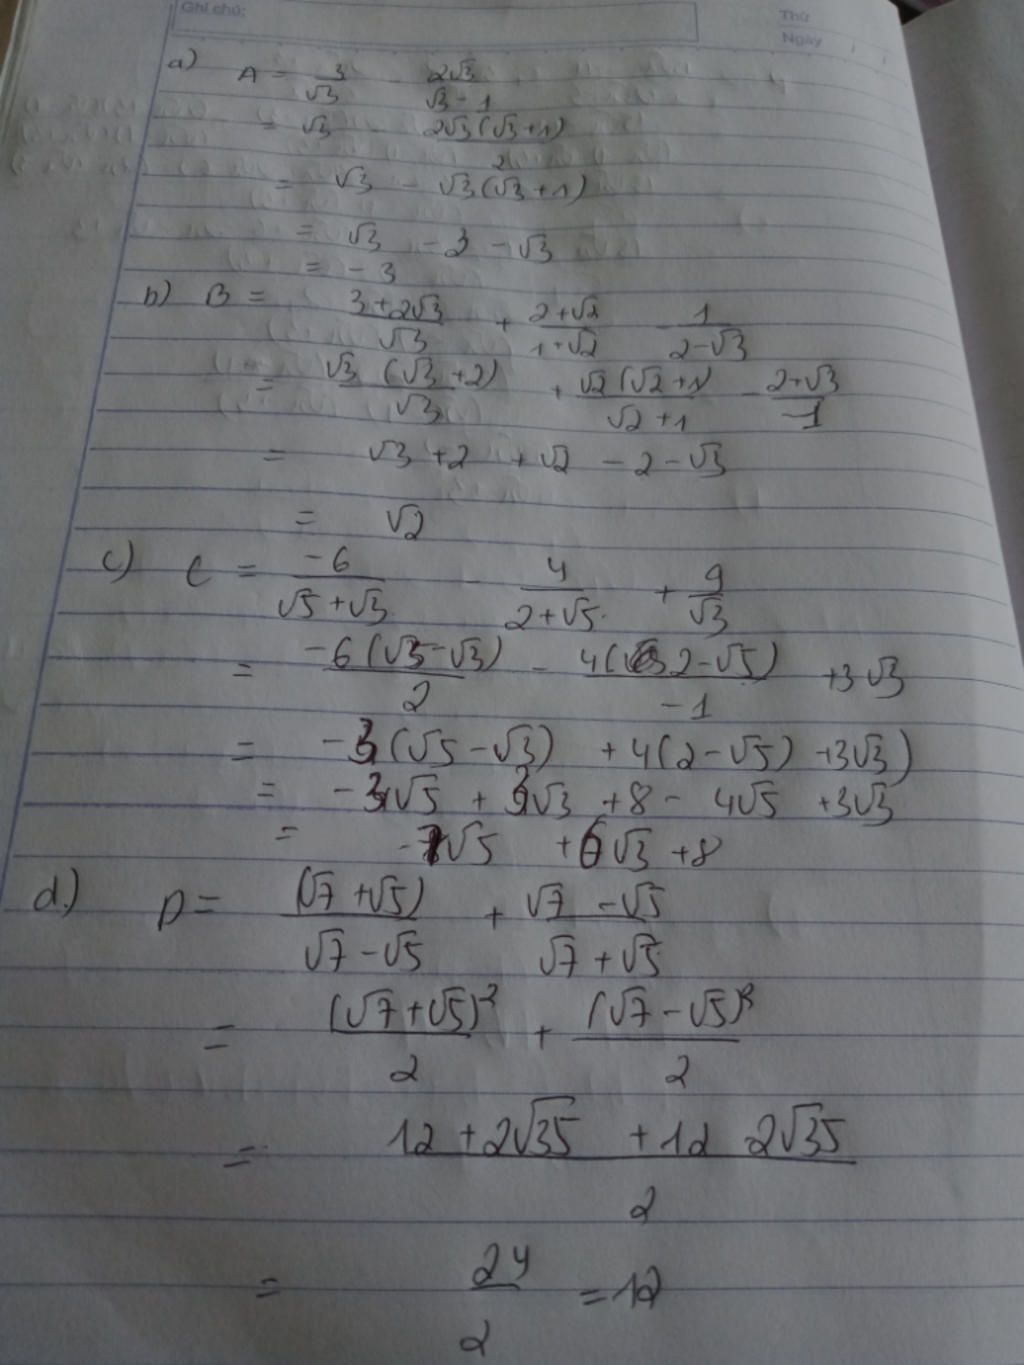 Ghi chú:
Thứ
Ngày
a) A = 3/√3 - 2√3/(√3 - 1)
= √3 - 2√3(√3+1)/2
= √3 - √3(√3 + 1)
= √3 - 3 - √3
= - 3
b) B = (3+2√3)/√3 + (2+√2)/(1+√2) - 1/(2-√3)
= √3 (√3 +2)/√3 + √2(√2+1)/(√2 +1) - (2+√3)/1
= √3 +2 + √2 - 2 - √3
= √2
c) C = -6/(√5 +√3) - 4/(2+√5) + 9/√3
= -6(√5-√3)/2 - 4(2-√5)/-1 +3√3
= -3(√5 -√3) +4(2-√5) +3√3)
= -3√5 + 3√3 +8 - 4√5 +3√3
= -7√5 +6√3 +8
d.) D = (√7 +√5)/(√7 -√5) + (√7 -√5)/(√7 +√5)
= (√7+√5)²/2 + (√7 -√5)²/2
= (12 +2√35 +12 2√35)/2
= 24/2 = 12